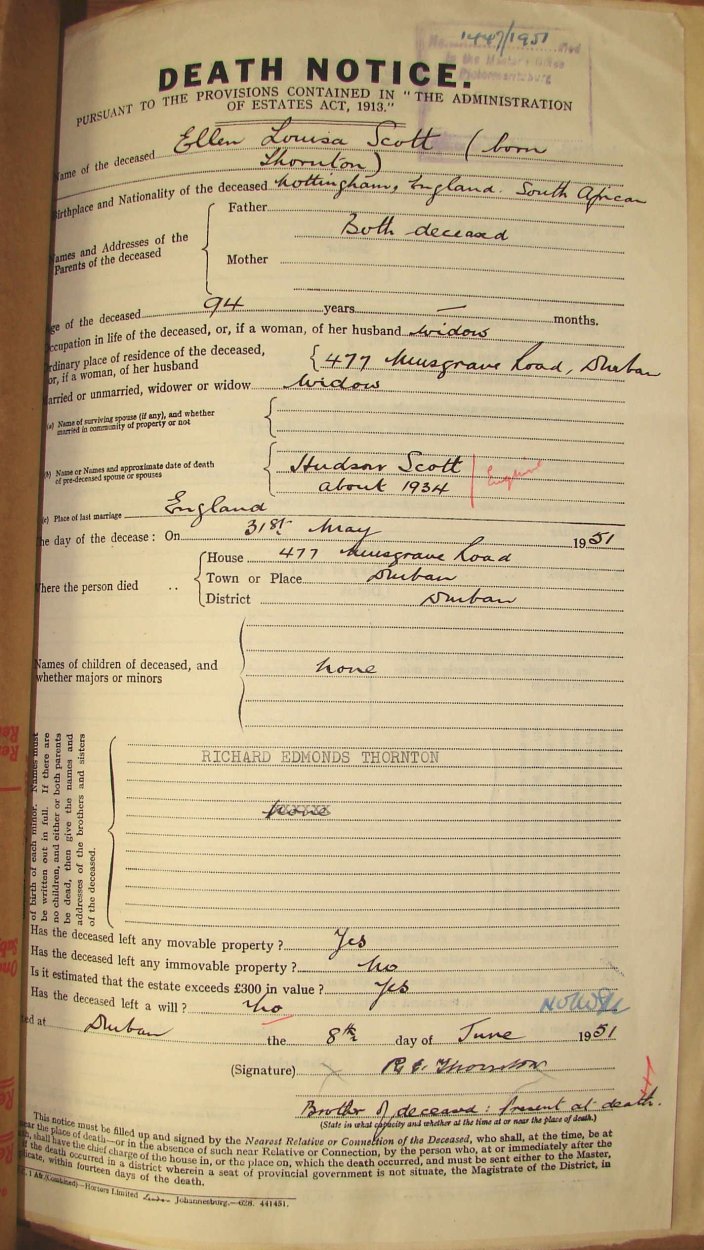 1447/1951
DEATH NOTICE.
PURSUANT TO THE PROVISIONS CONTAINED IN "THE ADMINISTRATION
OF ESTATES ACT, 1913."
Name of the deceased Ellen Louisa Scott (born
Thornton)
Birthplace and Nationality of the deceased Nottingham, England. South African
Father
Both deceased
Names and Addresses of the
Parents of the deceased
Mother
Age of the deceased 94 years — months.
Occupation in life of the deceased, or, if a woman, of her husband widow
Ordinary place of residence of the deceased,
or, if a woman, of her husband
477 Musgrave Road, Durban
Married or unmarried, widower or widow Widow
(a) Name of surviving spouse (if any), and whether
married in community of property or not
(b) Name or Names and approximate date of death
of pre-deceased spouse or spouses
Hudson Scott
about 1934
England
(c) Place of last marriage England
The day of the decease: On 31st May 1951
Where the person died ..
House 477 Musgrave Road
Town or Place Durban
District Durban
Names of children of deceased, and
whether majors or minors
None
of birth of each minor. Names must
be written out in full. If there are
no children, and either or both parents
be dead, then give the names and
addresses of the brothers and sisters
of the deceased.
RICHARD EDMONDS THORNTON
None
Has the deceased left any movable property? Yes
Has the deceased left any immovable property? No
Is it estimated that the estate exceeds £300 in value? Yes
Has the deceased left a will? No
Dated at Durban the 8th day of June 1951
(Signature) R E Thornton
Brother of deceased: Present at death.
(State in what capacity and whether at the time at or near the place of death.)
This notice must be filled up and signed by the Nearest Relative or Connection of the Deceased, who shall, at the time, be at
near the place of death—or in the absence of such near Relative or Connection, by the person who, at or immediately after the
death, shall have the chief charge of the house in, or the place on, which the death occurred, and must be sent either to the Master,
if the death occurred in a district wherein a seat of provincial government is not situate, the Magistrate of the District, in
duplicate, within fourteen days of the death.
1 Afr. (Combined)—Hortors Limited Johannesburg.—628. 441451.